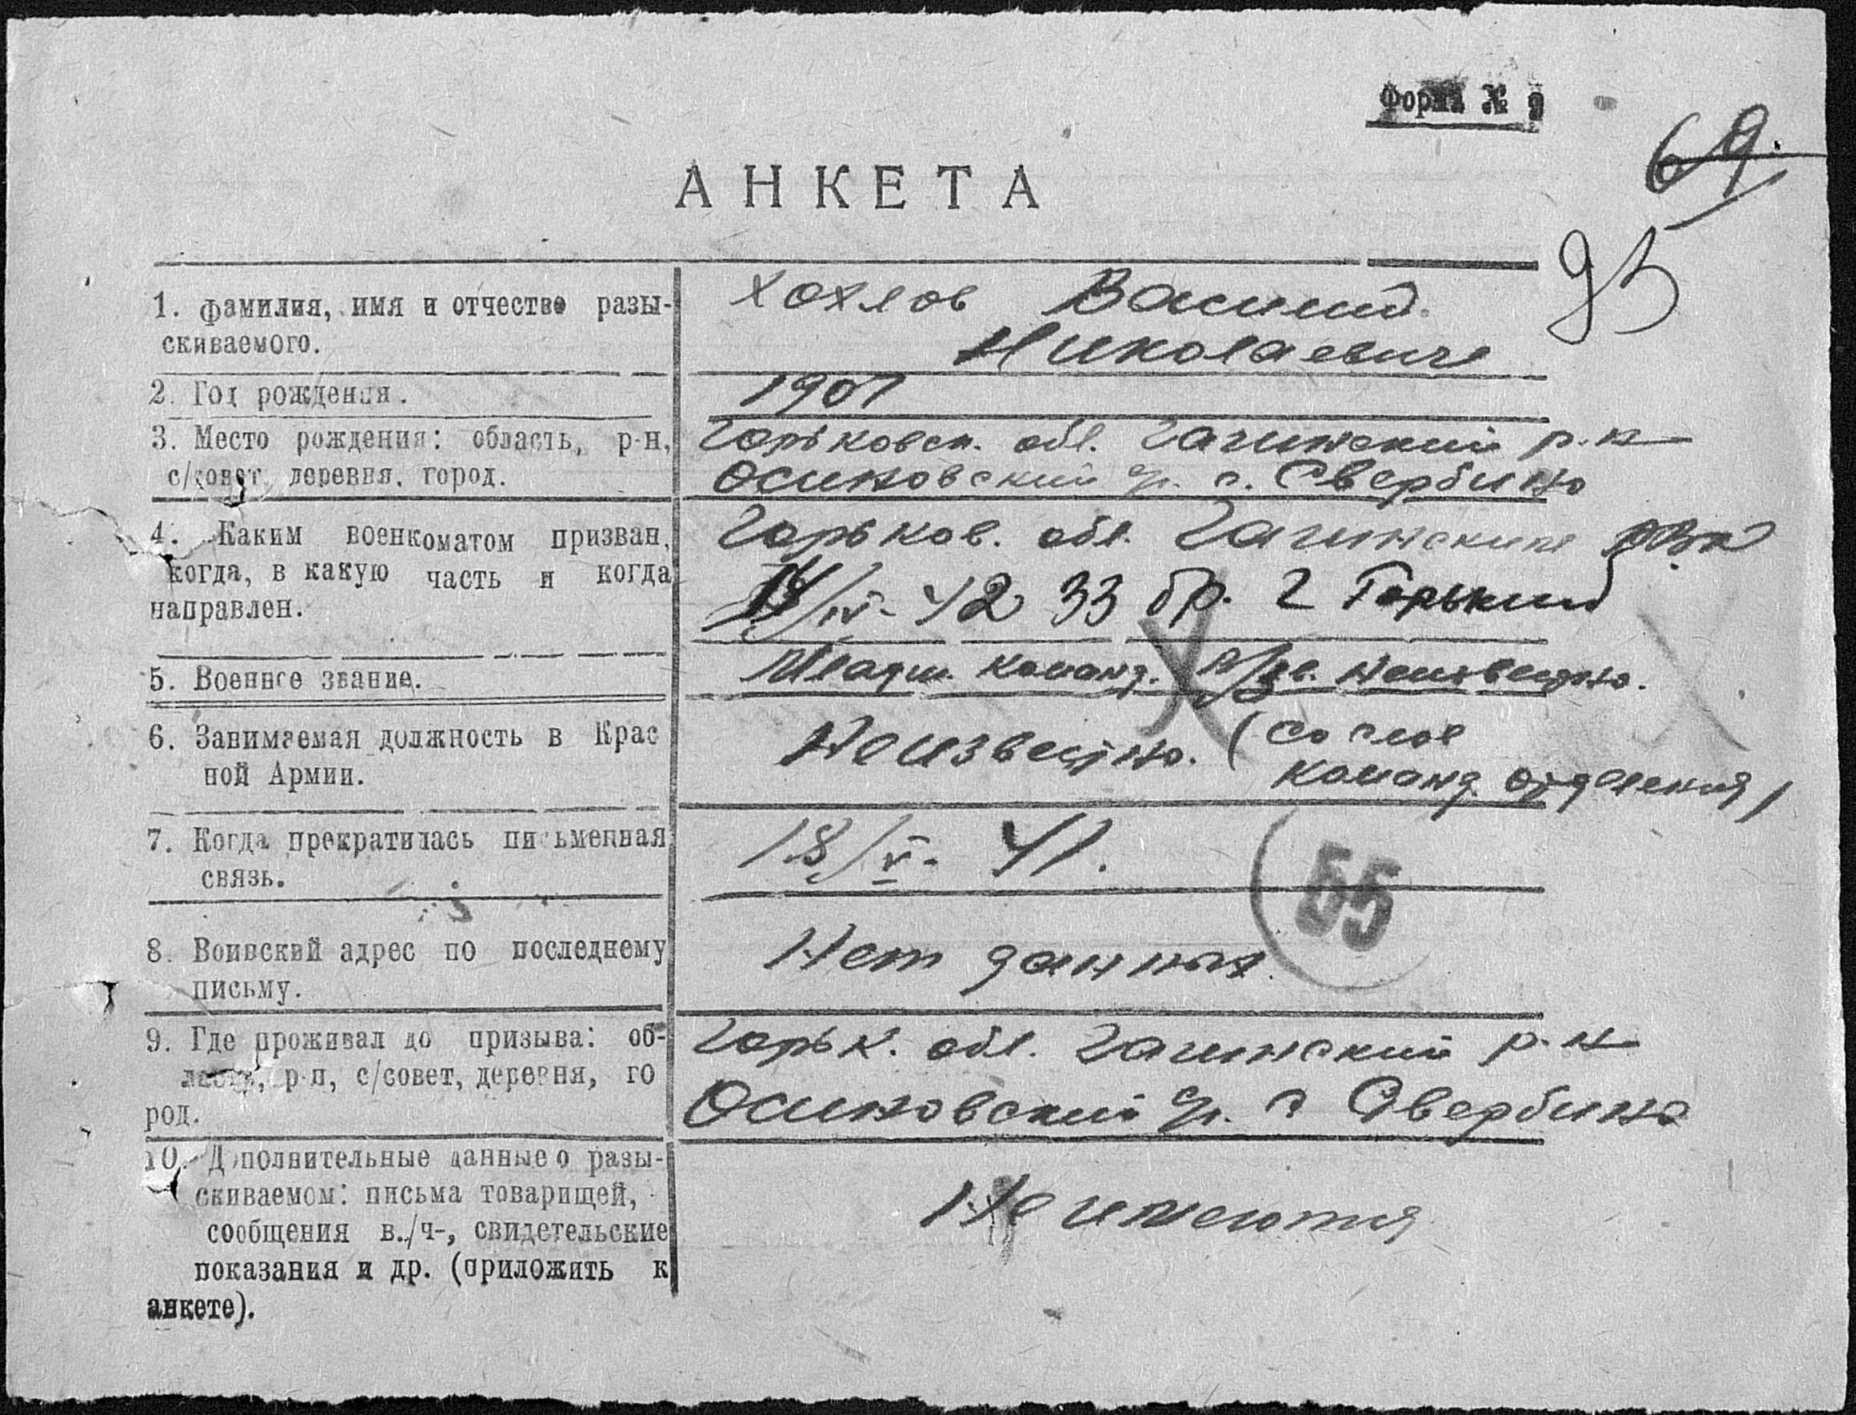 Форма № 9
69.
АНКЕТА
95
1. фамилия, имя и отчество разы-
скиваемого.
Хохлов Василий
Николаевич
2. Год рождения.
1901
3. Место рождения: область, р-н,
с/совет, деревня, город.
Горьковск. обл. Гагинский р-н
Осиновский с. Свербино
4. Каким военкоматом призван,
когда, в какую часть и когда
направлен.
Горьков. обл. Гагинским РВК
/IV-42 33 бр. г Горький
5. Военное звание.
Младш. команд. п/зв. неизвестно.
6. Занимаемая должность в Крас
ной Армии.
Неизвестно. (со слов
команд. отделения)
7. Когда прекратилась письменная
связь.
18/V-41.
8. Воинский адрес по последнему
письму.
Нет данных
55
9. Где проживал до призыва: об-
ласть, р-н, с/совет, деревня, го
род.
Горьк. обл. Гагинский р-н
Осиновский с Свербино
10. Дополнительные данные о разы-
скиваемом: письма товарищей,
сообщения в./ч-, свидетельские
показания и др. (приложить к
анкете).
Не имеются